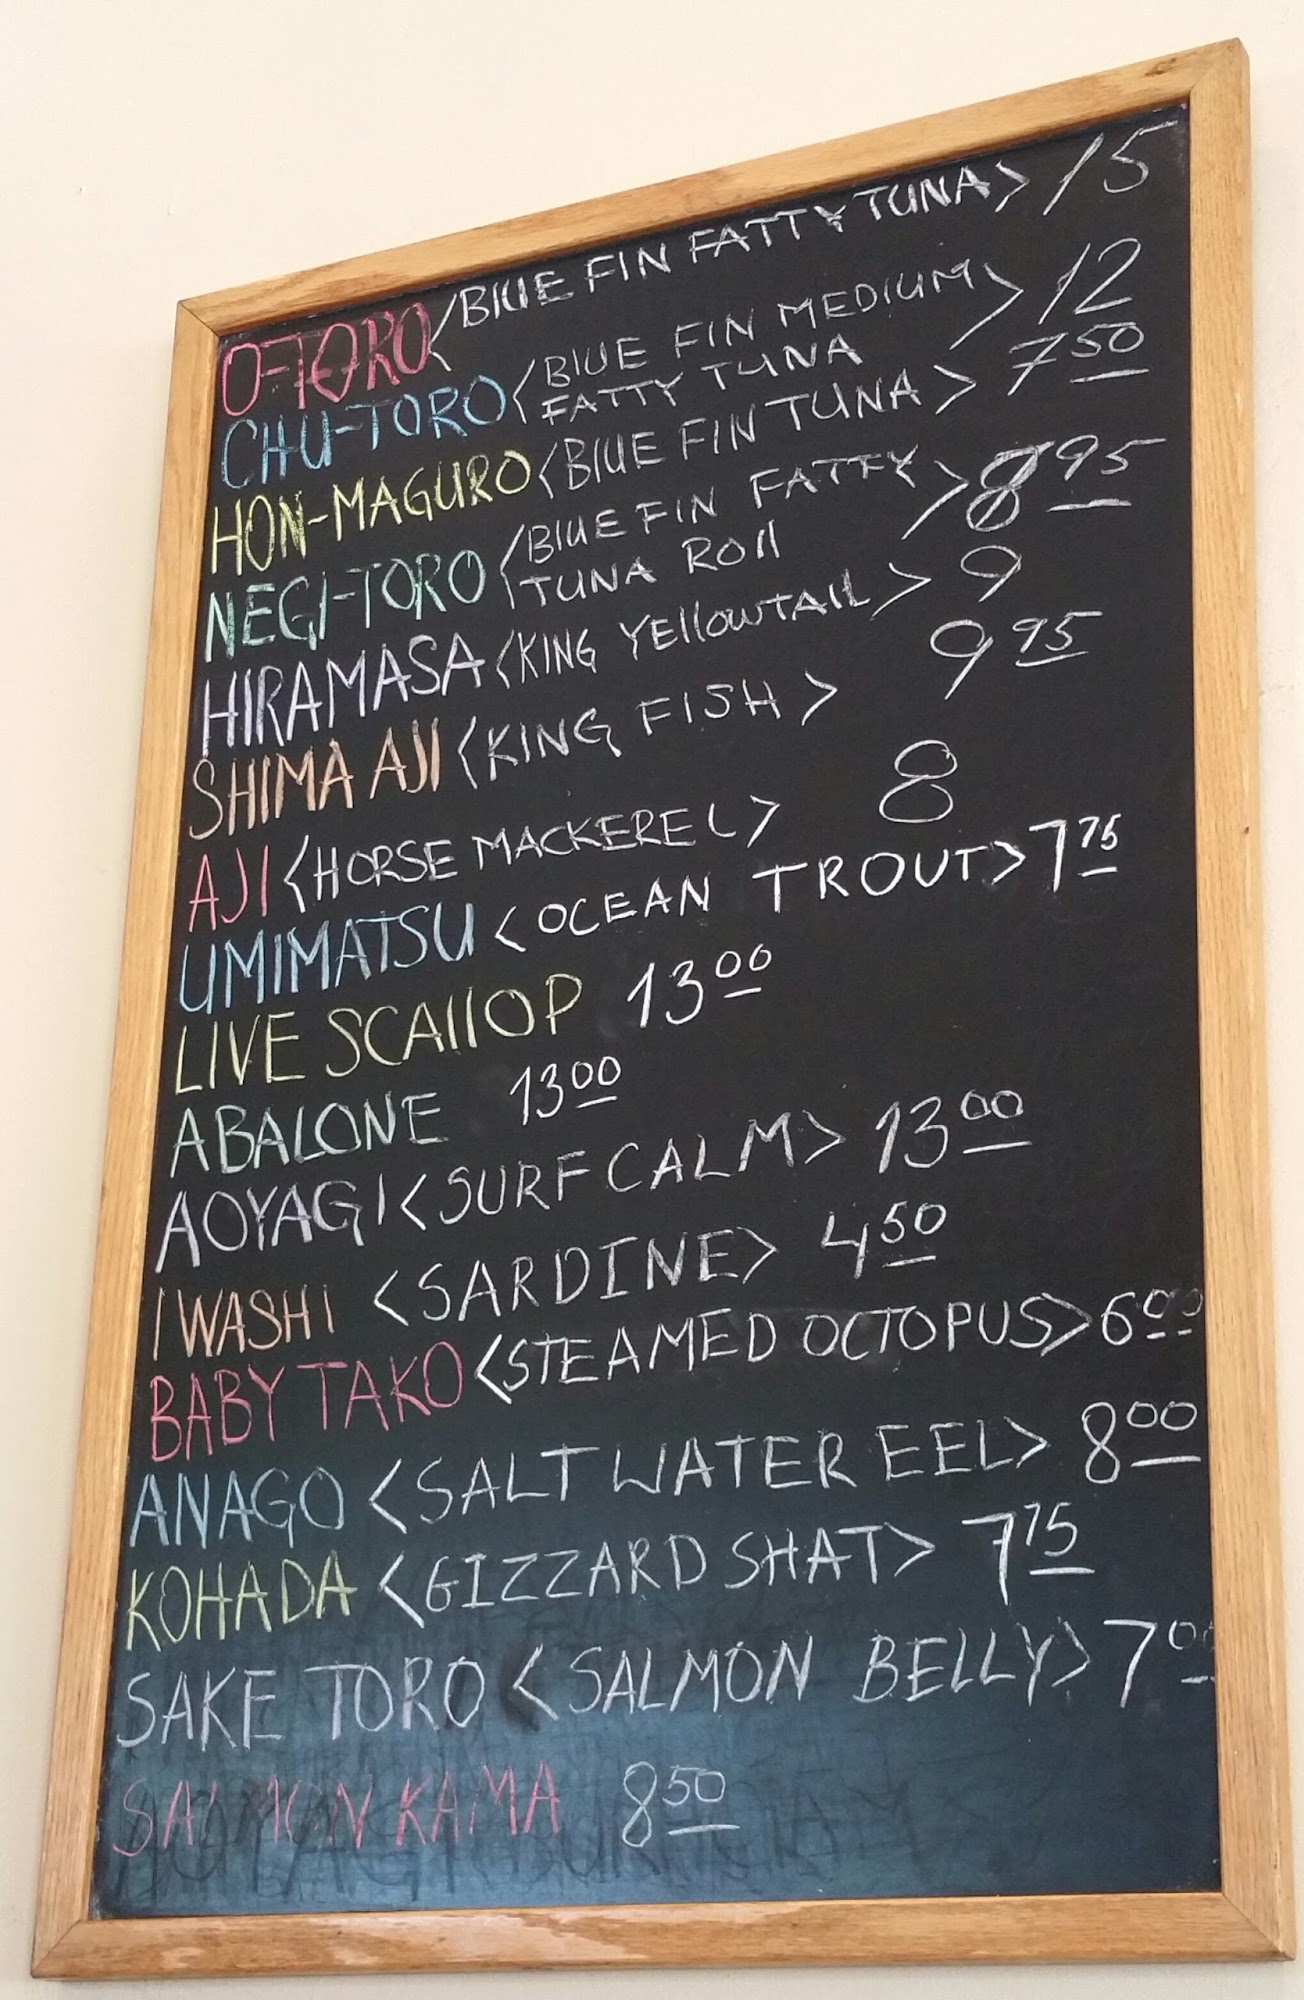 O-TORO <BLUE FIN FATTY TUNA> 15
CHU-TORO <BLUE FIN MEDIUM FATTY TUNA> 12
HON-MAGURO <BLUE FIN TUNA> 7.50
NEGI-TORO <BLUE FIN FATTY TUNA ROll> 8.95
HIRAMASA <KING YEllOWTAIL> 9
SHIMA AJI <KING FISH> 9.95
AJI <HORSE MACKEREL> 8
UMIMATSU <OCEAN TROUT> 7.75
LIVE SCAllOP 13.00
ABALONE 13.00
AOYAGI <SURF CALM> 13.00
IWASHI <SARDINE> 4.50
BABY TAKO <STEAMED OCTOPUS> 6.00
ANAGO <SALT WATER EEL> 8.00
KOHADA <GIZZARD SHAT> 7.75
SAKE TORO <SALMON BELLY> 7.00
SALMON KAMA 8.50